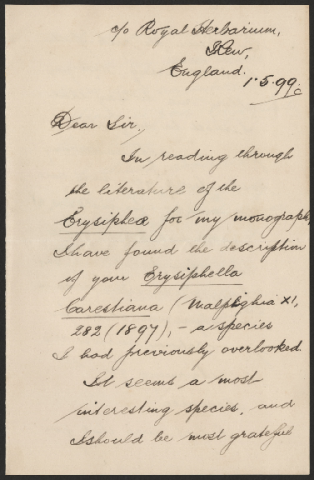 c/o Royal Herbarium,
Kew,
England.
1·5·99.
Dear Sir,
In reading through
the literature of the
Erysipheæ for my monograph,
I have found the description
of your Erysiphella
Carestiana (Malpighia XI,
282 (1897), – a species
I had previously overlooked.
It seems a most
interesting species, and
I should be most grateful